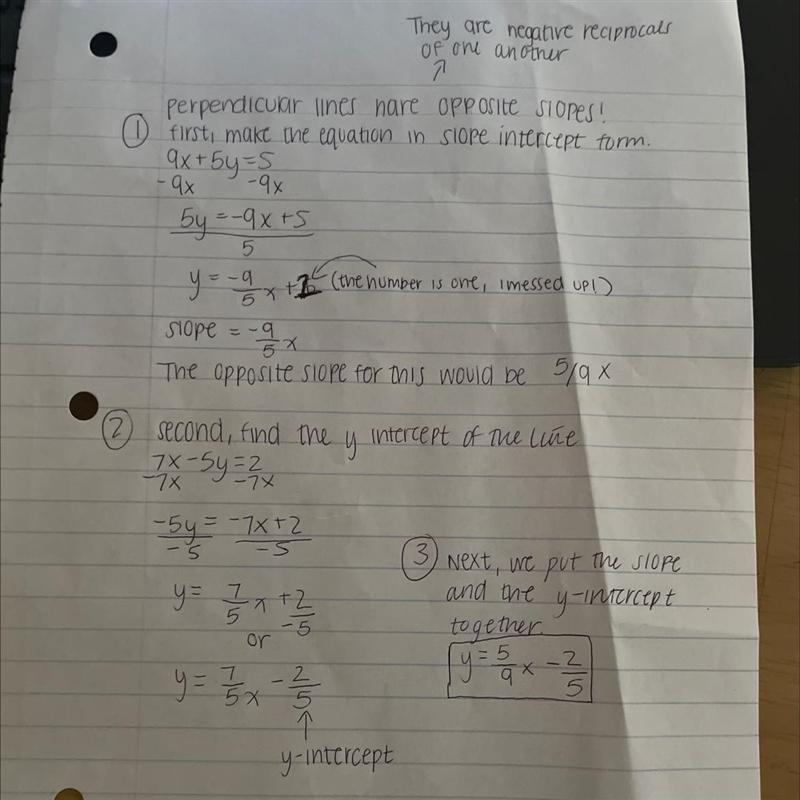 They are negative reciprocals
of one another
perpendicular lines have opposite slopes!
① first, make the equation in slope intercept form.
9x+5y=5
-9x -9x
5y=-9x+5
5
y = -9/5 x + 1 (the number is one, i messed up!)
slope = -9/5 x
The opposite slope for this would be 5/9 x
② second, find the y intercept of the line
7x-5y=2
-7x -7x
-5y = -7x+2
-5 -5
y= 7/5 x + 2/-5
or
y= 7/5 x - 2/5
y-intercept
③ Next, we put the slope
and the y-intercept
together.
y= 5/9 x - 2/5